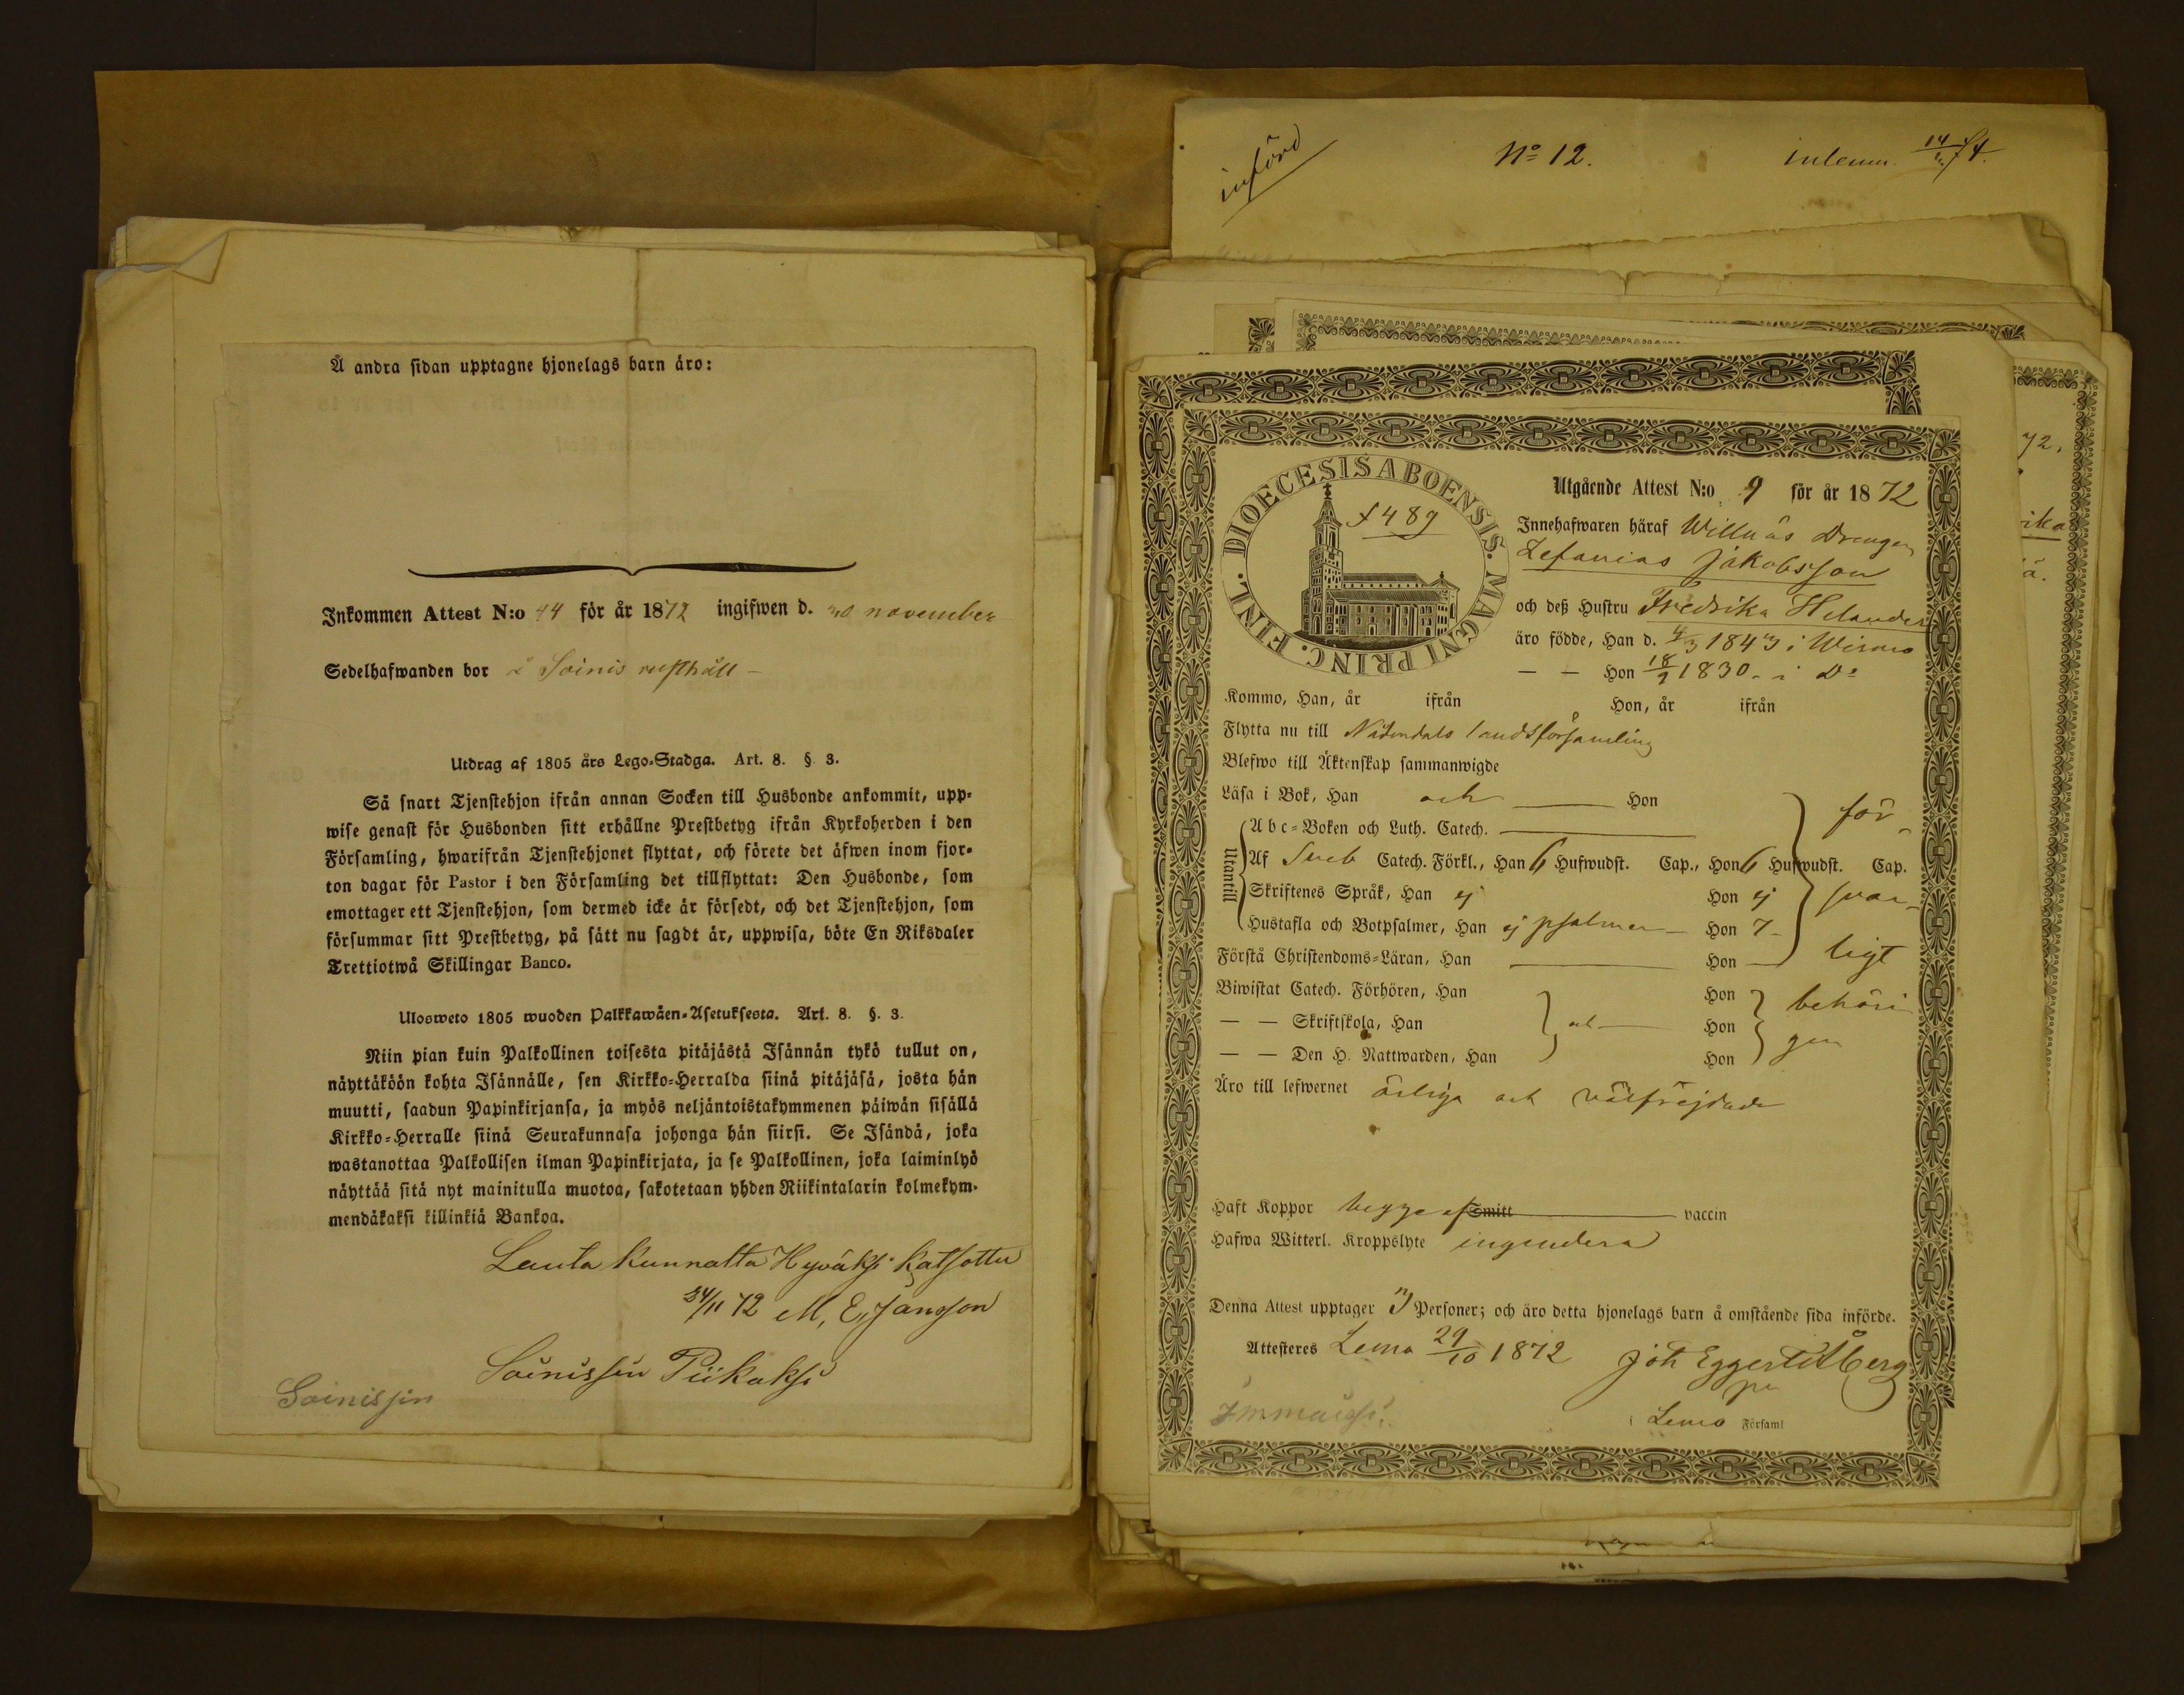 Å andra sidan upptagne hjonelags barn äro:
Inkommen Attest N:o 44 för år 1872 ingifwen d. 30 november
Sedelhafwanden bor å Soinis rusthåll –
Utdrag af 1805 års Lego-Stadga. Art. 8. §. 3.
Så snart Tjenstehjon ifrån annan Socken till Husbonde ankommit, upp-
wise genast för Husbonden sitt erhållne Prestbetyg ifrån Kyrkoherden i den
Församling, hwarifrån Tjenstehjonet flyttat, och förete det äfwen inom fjor-
ton dagar för Pastor i den Församling det tillflyttat: Den Husbonde, som
emottager ett Tjenstehjon, som dermed icke är försedt, och det Tjenstehjon, som
försummar sitt Prestbetyg, på sätt nu sagdt är, uppwisa, böte En Riksdaler
Trettiotwå Skillingar Banco.
Ulosweto 1805 wuoden Palkkawäen-Asetuksesta. Art. 8. §. 3.
Niin pian kuin Palkollinen toisesta pitäjästä Isännän tykö tullut on,
näyttäköön kohta Isännälle, sen Kirkko-Herralda siinä pitäjäsä, josta hän
muutti, saadun Papinkirjansa, ja myös neljäntoistakymmenen päiwän sisällä
Kirkko-Herralle siinä Seurakunnasa johonga hän siirsi. Se Isändä, joka
wastanottaa Palkollisen ilman Papinkirjata, ja se Palkollinen, joka laiminlyö
näyttää sitä nyt mainitulla muotoa, sakotetaan yhden Riikintalarin kolmekym-
mendäkaksi killinkiä Bankoa.
Lauta Kunnalta Hyväksi Katsottu
24/11 72 M. E. Janson
Soinissin Piikaksi
Soinissin
införd
No 12.
inlemn. 74.
72.
DIOECESIS ABOENSIS. MAGNI PRINC. FINL.
f 489
Utgående Attest N:o 9 för år 1872
Innehafwaren häraf Willnäs Drengen
Zefanias Jakobsson
och deß Hustru Fredrika Helander
äro födde, Han d. 4/3 1843 i Wirmo
— — Hon 18/9 1830 - i Do
Kommo, Han, år ifrån Hon, år ifrån
Flytta nu till Nådendals landsförsamling
Blefwo till Äktenskap sammanwigde
Läsa i Bok, Han och Hon
Utantill
Abc-Boken och Luth. Catech.
Af Sveb Catech. Förkl., Han 6 Hufwudst. Cap., Hon 6 Hufwudst. Cap.
Skriftenes Språk, Han ej Hon ej
Hustafla och Botpsalmer, Han ej psalmer Hon 7
Förstå Christendoms-Läran, Han Hon
för-
svar-
ligt
Biwistat Catech. Förhören, Han Hon
— — Skriftskola, Han och Hon
— — Den H. Nattwarden, Han Hon
behöri
gen
Äro till lefwernet ärliga och välfrejdade
Haft Koppor begge af Smitt vaccin
Hafwa Witterl. Kroppslyte ingendera
Denna Attest upptager Personer; och äro detta hjonelags barn å omstående sida införde.
Attesteras Lemo 29/10 1872 Joh Eggert Ahlberg
i Lemo Församl